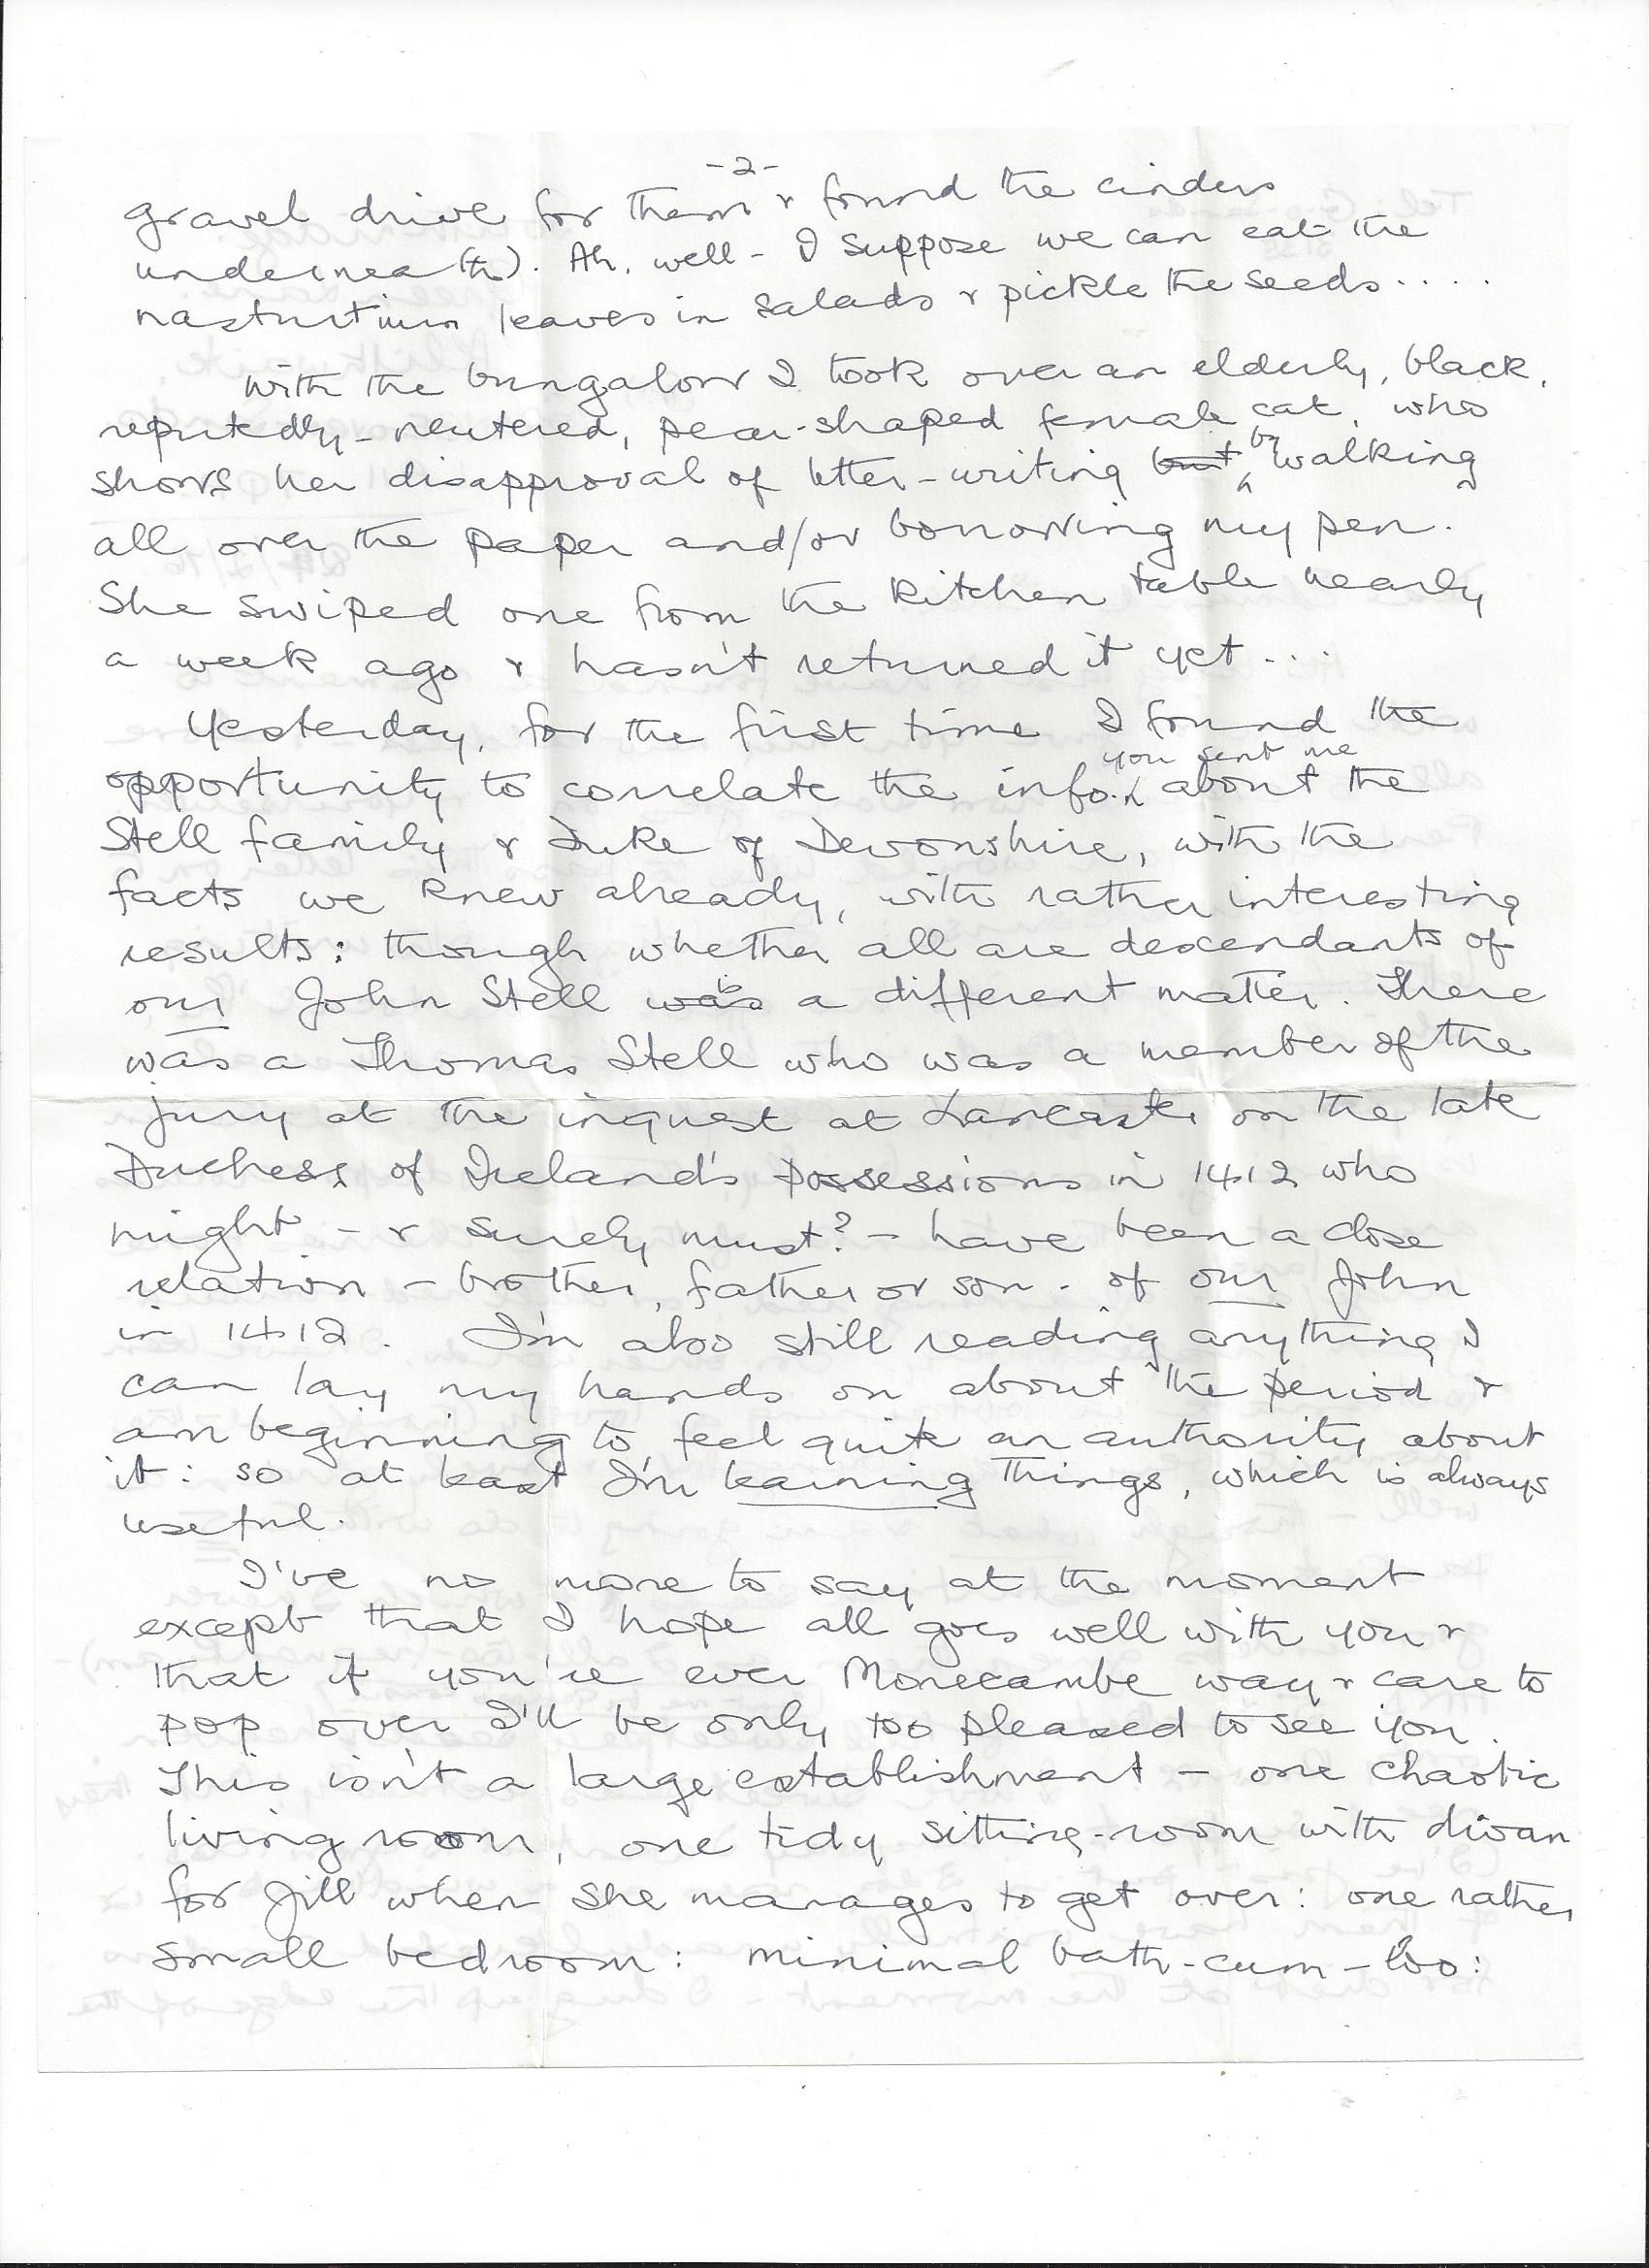 -2-
gravel drive for them & found the cinders
underneath). Ah, well - I suppose we can eat the
nasturtium leaves in salads & pickle the seeds.....
With the bungalow I took over an elderly, black,
reputedly-neutered, pear-shaped female cat, who
shows her disapproval of letter-writing but by walking
all over the paper and/or borrowing my pen.
She swiped one from the kitchen table nearly
a week ago & hasn't returned it yet...
Yesterday, for the first time I found the
opportunity to correlate the info. you sent me about the
Stell family & Duke of Devonshire, with the
facts we knew already, with rather interesting
results: though whether all are descendants of
our John Stell is a different matter. There
was a Thomas Stell who was a member of the
jury at the inquest at Lancaster on the late
Duchess of Ireland's possessions in 1412 who
might - & surely must? - have been a close
relation - brother, father or son - of our John
in 1412. I'm also still reading anything I
can lay my hands on about the period &
am beginning to feel quite an authority about
it: so at least I'm learning things, which is always
useful.
I've no more to say at the moment
except that I hope all goes well with you &
that if you're ever Morecambe way & care to
pop over I'll be only too pleased to see you.
This isn't a large establishment - one chaotic
living room, one tidy sitting-room with divan
for Jill when she manages to get over: one rather
small bedroom: minimal bath-cum-loo: